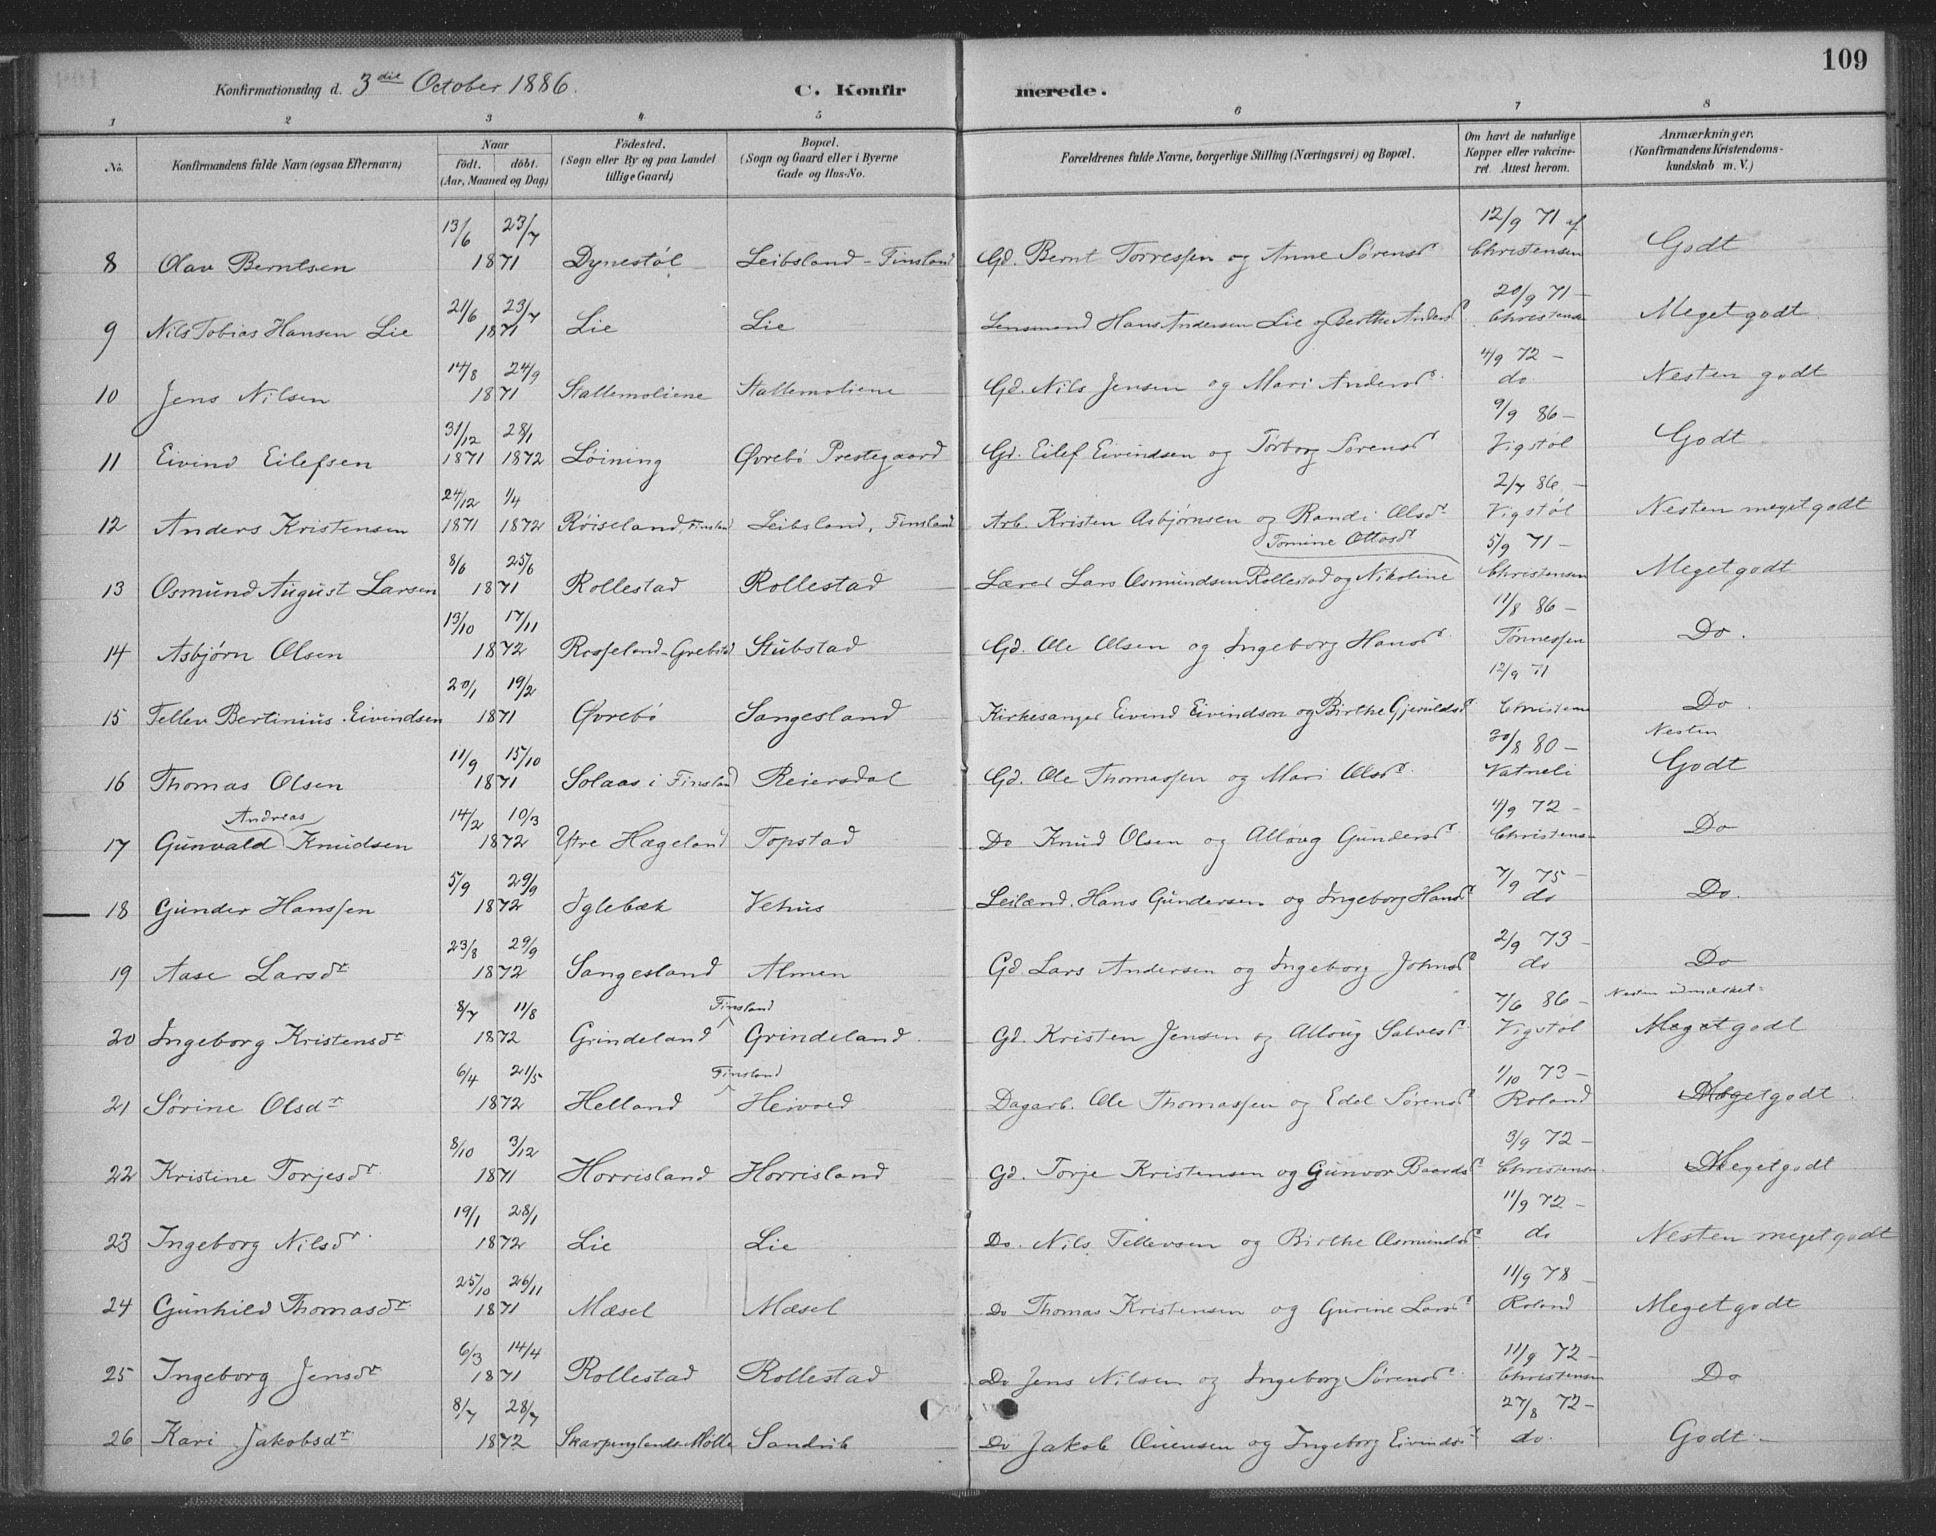 109
Konfirmationsdag d. 3die October 1886. C. Konfirmerede.
1 2 3 4 5 6 7 8
No. Konfirmandens fulde Navn (ogsaa Efternavn) Naar født. døbt. (Aar, Maaned og Dag) Fødested. (Sogn eller By og paa Landet tillige Gaard) Bopæl. (Sogn og Gaard eller i Byerne Gade og Hus-No. Forældrenes fulde Navne, borgerlige Stilling (Næringsvei) og Bopæl. Om havt de naturlige Kopper eller vakcineret. Attest herom. Anmærkninger. (Konfirmandens Kristendomskundskab m. V.)
13/6 23/7 12/9 71 af
8 Olav Berntsen 1871 Dynestøl Leibsland - Finsland Gd. Bernt Torressen og Anne Sørensdr Christensen Godt
21/6 23/7 20/9 71 -
9 Nils Tobias Hansen Lie 1871 Lie Lie Lensmand Hans Andersen Lie og Berthe Andersdr Christensen Meget godt
14/8 24/9 4/9 72 -
10 Jens Nilsen 1871 Stallemoliene Stallemoliene Gd. Nils Jensen og Mari Andersdr do. Nesten godt
31/12 28/1 9/9 86 -
11 Eivind Eilefsen 1871 1872 Løining Øvrebø Prestegaard Gd. Eilef Eivindsen og Torborg Sørensdr Vigstøl Godt
24/12 1/4 2/7 86 -
12 Anders Kristensen 1871 1872 Røiseland, Finsland Leibsland, Finsland Arb. Kristen Asbjørnsen og Randi Olsdr Vigstøl Nesten meget godt
8/6 25/6 Tomine Ottosdr 5/9 71 -
13 Osmund August Larsen 1871 Rollestad Rollestad Lærer Lars Osmundsen Rollestad og Nikoline Christensen Meget godt
13/10 17/11 11/8 86 -
14 Asbjørn Olsen 1872 Rosseland - Grebstad Stubstad Gd. Ole Olsen og Ingeborg Hansdr Tønnessen Do.
20/1 19/2 12/9 71
15 Tellev Bertinius Eivindsen 1871 Øvrebø Sangesland Kirkesanger Eivind Eivindson og Birthe Gjeruldsdr Christensen Do
11/9 15/10 30/8 80 - Nesten
16 Thomas Olsen 1871 Solaas i Finsland Reiersdal Gd. Ole Thomassen og Mari Olsdr Vatneli Godt
Andreas 14/2 10/3 4/9 72 -
17 Gunvald Knudsen 1872 Ytre Hægeland Topstad Do Knud Olsen og Alloug Gundersdr Christensen Do
5/9 29/9 7/9 75 -
18 Gunder Hanssen 1872 Iglebæk Vehus Leilænd. Hans Gundersen og Ingeborg Hansdr do Do.
23/8 29/9 2/9 73 -
19 Aase Larsdr 1872 Sangesland Almen Gd. Lars Andersen og Ingeborg Johnsdr do Do
8/7 11/8 Finsland 7/6 86 - Nesten udmærket
20 Ingeborg Kristensdr 1872 Grindeland Grindeland Gd. Kristen Jensen og Alloug Salvesdr Vigstøl Meget godt
6/4 21/5 Finsland 1/10 73 -
21 Sørine Olsdr 1872 Helland Heivred Dagarb. Ole Thomassen og Edel Sørensdr Roland Meget godt
8/10 3/12 3/9 72 -
22 Kristine Torjesdr 1871 Horrisland Horrisland Gd. Torje Kristensen og Gunvor Baardsdr Christensen Meget godt
19/1 28/1 11/9 72 -
23 Ingeborg Nilsdr 1872 Lie Lie Do. Nils Tellevsen og Birthe Osmundsdr do Nesten meget godt
25/10 26/11 11/9 78 -
24 Gunhild Thomasdr 1871 Mæsel Mæsel Do Thomas Kristensen og Gurine Larsdr Roland Meget godt
6/3 14/4 11/9 72 -
25 Ingeborg Jensdr 1871 Rollestad Rollestad Do Jens Nilsen og Ingeborg Sørensdr Christensen Do
8/7 28/7 27/8 72 -
26 Kari Jakobsdr 1872 Skarpenglands Mølle Sandrib Do Jakob Ouensen og Ingeborg Eivindsdr do. Godt